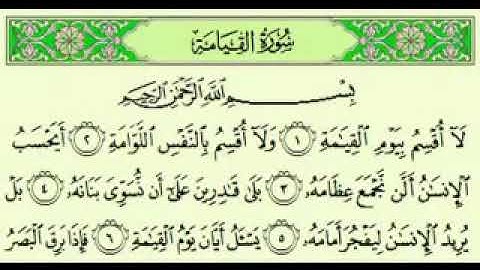 سُورَةُ القِيَامَةِ
بِسْمِ اللَّهِ الرَّحْمَٰنِ الرَّحِيمِ
لَآ أُقْسِمُ بِيَوْمِ الْقِيَٰمَةِ ١ وَلَآ أُقْسِمُ بِالنَّفْسِ اللَّوَّامَةِ ٢ أَيَحْسَبُ
الْإِنسَٰنُ أَلَّن نَّجْمَعَ عِظَامَهُۥ ٣ بَلَىٰ قَٰدِرِينَ عَلَىٰٓ أَن نُّسَوِّىَ بَنَانَهُۥ ٤ بَلْ
يُرِيدُ الْإِنسَٰنُ لِيَفْجُرَ أَمَامَهُۥ ٥ يَسْـَٔلُ أَيَّانَ يَوْمُ الْقِيَٰمَةِ ٦ فَإِذَا بَرِقَ الْبَصَرُ